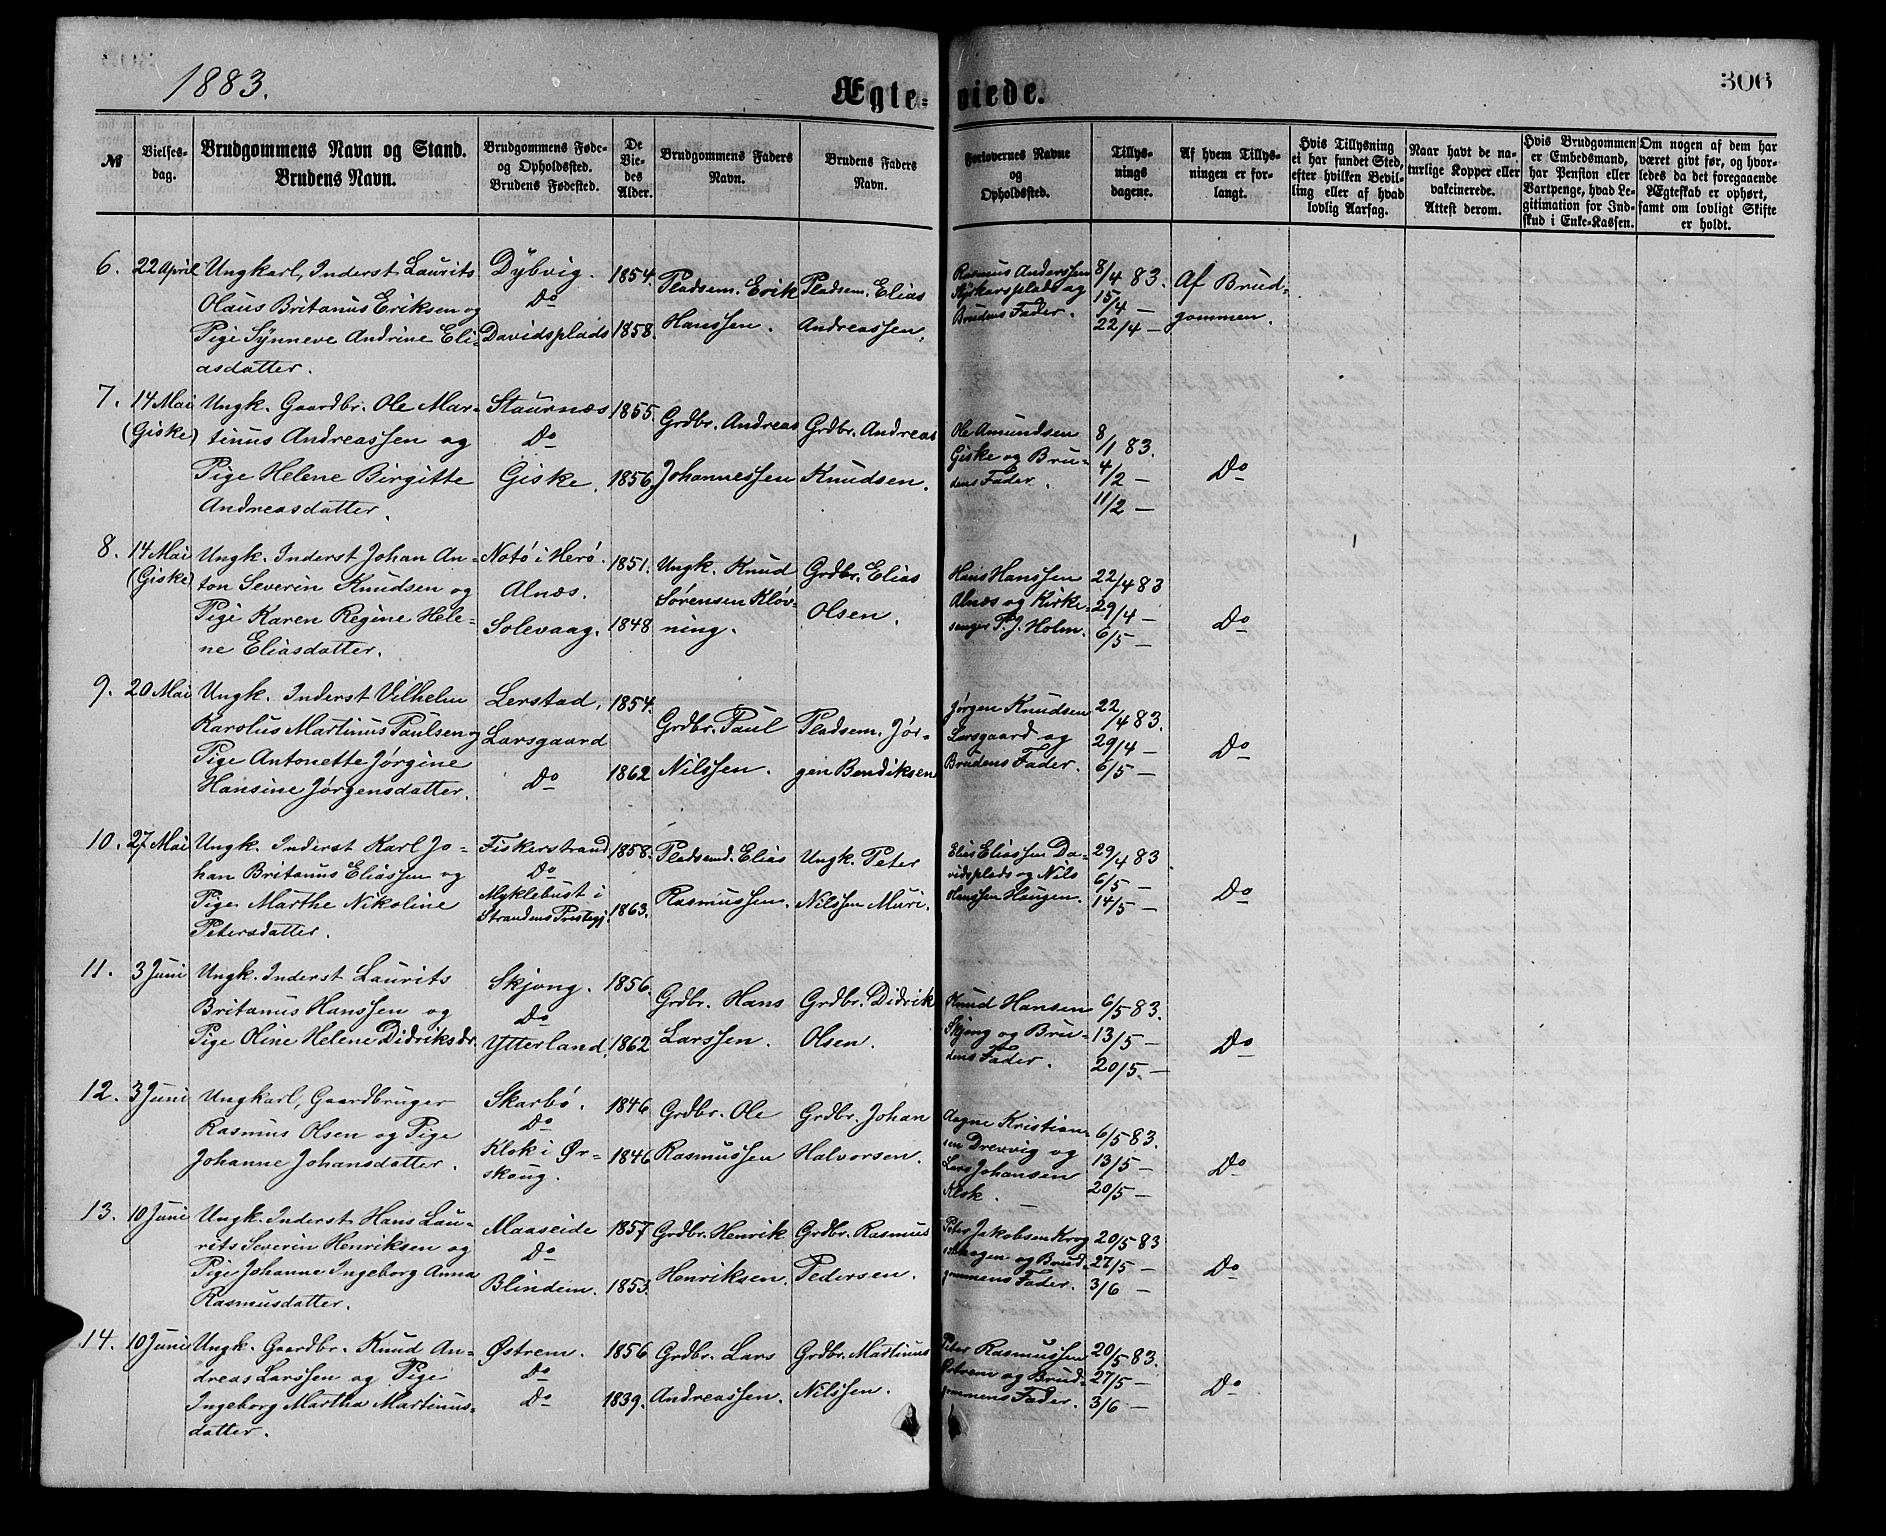 1883.
Ægte-
viede.
306
№
Vielses-
dag.
Brudgommens Navn og Stand.
Brudens Navn.
Brudgommens Føde-
og Opholdssted.
Brudens Fødested.
De
Vie-
des
Alder.
Brudgommens Faders
Navn.
Brudens Faders
Navn.
Forlovernes Navne
og
Opholdssted.
Tillys-
nings
dagene.
Af hvem Tillys-
ningen er for-
langt.
Hvis Tillysning
ei har fundet Sted,
efter hvilken Bevil-
ling eller af hvad
lovlig Aarsag.
Naar havt de na-
turlige Kopper eller
vakcinerede.
Attest derom.
Hvis Brudgommen
er Embedsmand,
har Pension eller
Vartpenge, hvad Le-
gitimation for Ind-
skud i Enke-Kassen.
Om nogen af dem har
været givt før, og hvor-
ledes da det foregaaende
Ægteskab er ophørt,
samt om lovligt Skifte
er holdt.
6. 22 April
Ungkarl, Inderst Laurits
Olaus Britanus Eriksen og
Pige Synneve Andrine Eli-
asdatter.
Dybvig.
Do
Davidsplads
1854.
1858.
Pladsem. Erik
Hanssen.
Pladsem. Elias
Andreassen.
Rasmus Anderssen
plads og
Brudens Fader.
8/4 83.
15/4 —
22/4 —
Af Brud-
gommen.
7. 14 Mai
(Giske)
Ungk. Gaardbr. Ole Mar-
tinus Andreassen og
Pige Helene Birgitte
Andreasdatter.
Staurnæs
Do
Giske.
1855.
1856.
Grdbr. Andreas
Johannessen
Grdbr. Andreas
Knudsen.
Ole Amundsen
Giske og Bru-
dens Fader.
8/1 83.
4/2 —
11/2 —
Do
8. 14 Mai
(Giske)
Ungk. Inderst Johan An-
ton Severin Knudsen og
Pige Karen Regine Hele-
ne Eliasdatter.
Notö i Herö.
Alnæs.
Solevaag.
1851.
1848
Ungk. Knud
Sørensen Kløv-
ning.
Grdbr. Elias
Olsen.
Hans Hanssen
Alnæs og Kirke-
sanger P. J. Holm.
22/4 83
29/4 —
6/5 —
Do
9. 20 Mai
Ungk. Inderst Vilhelm
Karolus Martinus Paulsen og
Pige Antonette Jørgine
Hansine Jørgensdatter.
Lerstad.
Larsgaard
Do
1854.
1862
Grdbr. Paul
Nilssen.
Pladsem. Jør-
gen Bendiksen
Jørgen Knudsen
Larsgaard og
Brudens Fader.
22/4 83.
29/4 —
6/5 —
Do
10. 27 Mai
Ungk. Inderst Karl Jo-
han Britanus Eliassen og
Pige Marthe Nikoline
Petersdatter.
Fiskerstrand
Do
Myklebust i
Strandens Prestegj.
1858.
1863.
Pladsemd. Elias
Rasmussen.
Ungk. Peter
Nilssen Muri.
Elias Eliassen Da-
vidsplads og Nils
Hanssen Haugen.
29/4 83
6/5 —
14/5 —
Do
11. 3 Juni
Ungk. Inderst Laurits
Britanus Hanssen og
Pige Oline Helene Didriksdr.
Skjong.
Do
Ytterland.
1856.
1862
Grdbr. Hans
Larssen.
Grdbr. Didrik
Olsen.
Knud Hansen
Skjong og Bru-
dens Fader.
6/5 83.
13/5 —
20/5. —
Do
12. 3 Juni
Ungkarl, Gaardbruger
Rasmus Olsen og Pige
Johanne Johansdatter.
Skarbö.
Do
Klok i Ør-
skoug.
1846
1846
Grdbr. Ole
Rasmussen
Grdbr. Johan
Halvorsen.
Aagne Kristian-
sen Drevvig og
Lars Johansen
Klok.
6/5 83.
13/5 —
20/5 —
Do
13. 10 Juni
Ungk. Inderst Hans Lau-
rits Severin Henriksen og
Pige Johanne Ingeborg Anna
Rasmusdatter.
Maaseide
Do
Blindem.
1857
1853.
Grdbr. Henrik
Henriksen.
Grdbr. Rasmus
Pedersen.
Peter Jakobsen Krog
og Brud-
gommens Fader.
20/5 83
27/5 —
3/6 —
Do
14. 10 Juni
Ungk. Gaardbr. Knud An-
dreas Larssen og Pige
Ingeborg Martha Martinus-
datter.
Østrem.
Do
Do
1856
1839.
Grdbr. Lars
Andreassen.
Grdbr. Martinus
Nilssen.
Peter Rasmussen
Østrem og Brud-
gommens Fader.
20/5 83.
27/5 —
3/6 —
Do